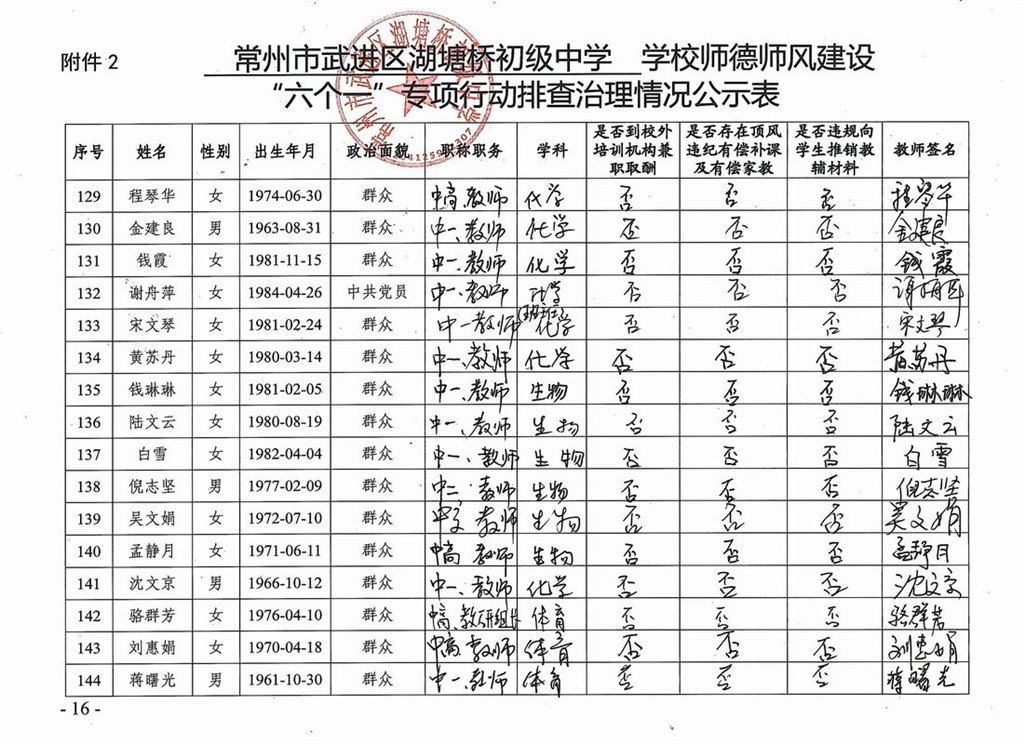 附件2
常州市武进区湖塘桥初级中学 学校师德师风建设
“六个一”专项行动排查治理情况公示表
序号 姓名 性别 出生年月 政治面貌 职称职务 学科 是否到校外培训机构兼职取酬 是否存在顶风违纪有偿补课及有偿家教 是否违规向学生推销教辅材料 教师签名
129 程琴华 女 1974-06-30 群众 中高.教师 化学 否 否 否 程琴华
130 金建良 男 1963-08-31 群众 中一.教师 化学 否 否 否 金建良
131 钱霞 女 1981-11-15 群众 中一.教师 化学 否 否 否 钱霞
132 谢舟萍 女 1984-04-26 中共党员 中一.教师 化学 否 否 否 谢舟萍
133 宋文琴 女 1981-02-24 群众 中一教师 (班主任) 化学 否 否 否 宋文琴
134 黄苏丹 女 1980-03-14 群众 中一.教师 化学 否 否 否 黄苏丹
135 钱琳琳 女 1981-02-05 群众 中一.教师 生物 否 否 否 钱琳琳
136 陆文云 女 1980-08-19 群众 中一、教师 生物 否 否 否 陆文云
137 白雪 女 1982-04-04 群众 中一、教师 生物 否 否 否 白雪
138 倪志坚 男 1977-02-09 群众 中二、教师 生物 否 否 否 倪志坚
139 吴文娟 女 1972-07-10 群众 教师 生物 否 否 否 吴文娟
140 孟静月 女 1971-06-11 群众 中高 教师 生物 否 否 否 孟静月
141 沈文京 男 1966-10-12 群众 中一、教师 化学 否 否 否 沈文京
142 骆群芳 女 1976-04-10 群众 中高.教研组长 体育 否 否 否 骆群芳
143 刘惠娟 女 1970-04-18 群众 中高.教师 体育 否 否 否 刘惠娟
144 蒋曙光 男 1961-10-30 群众 中一.教师 体育 否 否 否 蒋曙光
- 16 -